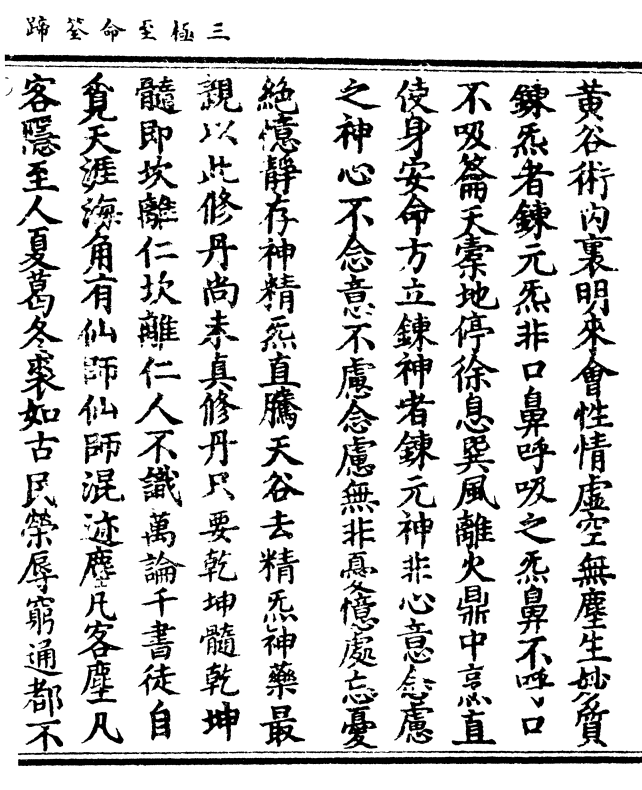 三極至命筌蹄
黄谷術內裏明來會性情虛空無塵生妙質
鍊炁者鍊元炁非口鼻呼吸之炁鼻不呼口
不吸籥天槖地停徐息巽風離火鼎中烹直
使身安命方立鍊神者鍊元神非心意念慮
之神心不念意不慮念慮無非憂憶處忘憂
絶憶靜存神精炁直騰天谷去精炁神藥最
親以此修丹尚未真修丹只要乾坤髓乾坤
髓即坎離仁坎離仁人不識萬論千書徒自
覓天涯海角有仙師仙師混迹塵凡客塵凡
客隱至人夏葛冬裘如古民榮辱窮通都不